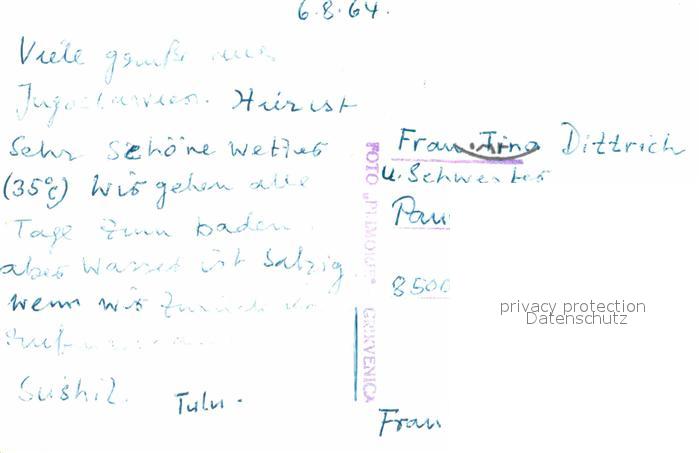 6.8.64.
Viele
Jugoslavien. Hier ist
Sehr Schöne Wetter
(35°C) Wir gehen alle
Tage Zum baden.
aber Wasser ist Salzig.
wenn wir Zurück
Sushil. Tulu.
FOTO „PRIMORJE" CRIKVENICA
Frau Tina Dittrich
u. Schwester
Pau
8500
Frau
privacy protection
Datenschutz